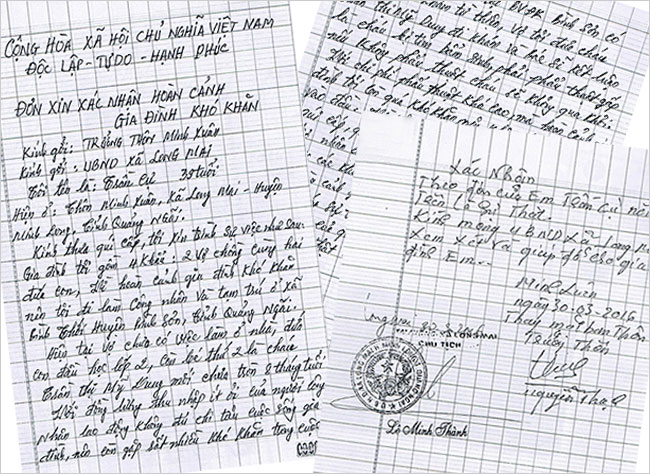 CỘNG HÒA XÃ HỘI CHỦ NGHĨA VIỆT NAM
ĐỘC LẬP - TỰ DO - HẠNH PHÚC
ĐƠN XIN XÁC NHẬN HOÀN CẢNH
GIA ĐÌNH KHÓ KHĂN
Kính gởi: TRƯỞNG Thôn Minh Xuân
Kính gởi: UBND XÃ LONG MAI
Tôi tên là: Trần Cử 35 tuổi
Hiện ở: Thôn Minh Xuân, Xã Long Mai - Huyện
Minh Long, Tỉnh Quảng Ngãi.
Kính thưa quí cấp, tôi xin trình sự việc như sau.
Gia đình tôi gồm 4 khẩu: 2 vợ chồng cùng hai
đứa con, Do hoàn cảnh gia đình khó khăn
nên tôi đi làm Công nhân và tạm trú ở xã
Bình Thới Huyện Bình Sơn, Tỉnh Quảng Ngãi.
Hiện tại vợ chưa có việc làm ở nhà, đứa
con đầu học lớp 2, Còn bé thứ 2 là cháu
Trần Thị Mỹ Dung mới chưa tròn 2 tháng tuổi
Với đồng lương thu nhập ít ỏi của người công
Nhân lao động không đủ chi tiêu cuộc sống gia
đình, nên còn gặp rất nhiều khó khăn trong cuộc
BVĐK Bình Sơn có
thân, vợ tôi đưa cháu
Thị Mỹ Dung đi khám và bác sĩ kết luận
là cháu bị tim bẩm sinh phải phẫu thuật gấp
nếu không phẫu thuật cháu sẽ không qua khỏi.
chi phí phẫu thuật khá cao, mà hoàn cảnh
đình tôi còn quá khó khăn
Xác Nhận
Theo đơn của Em Trần Cử nêu
Trên Là Sự Thật.
Kính mong UBND Xã Long Mai
Xem xét và giúp đỡ cho gia
đình Em..
Minh Xuân
ngày 30-03-2016
Thay mặt ban Thôn
Trưởng Thôn
CHỦ TỊCH
Lê Minh Thành